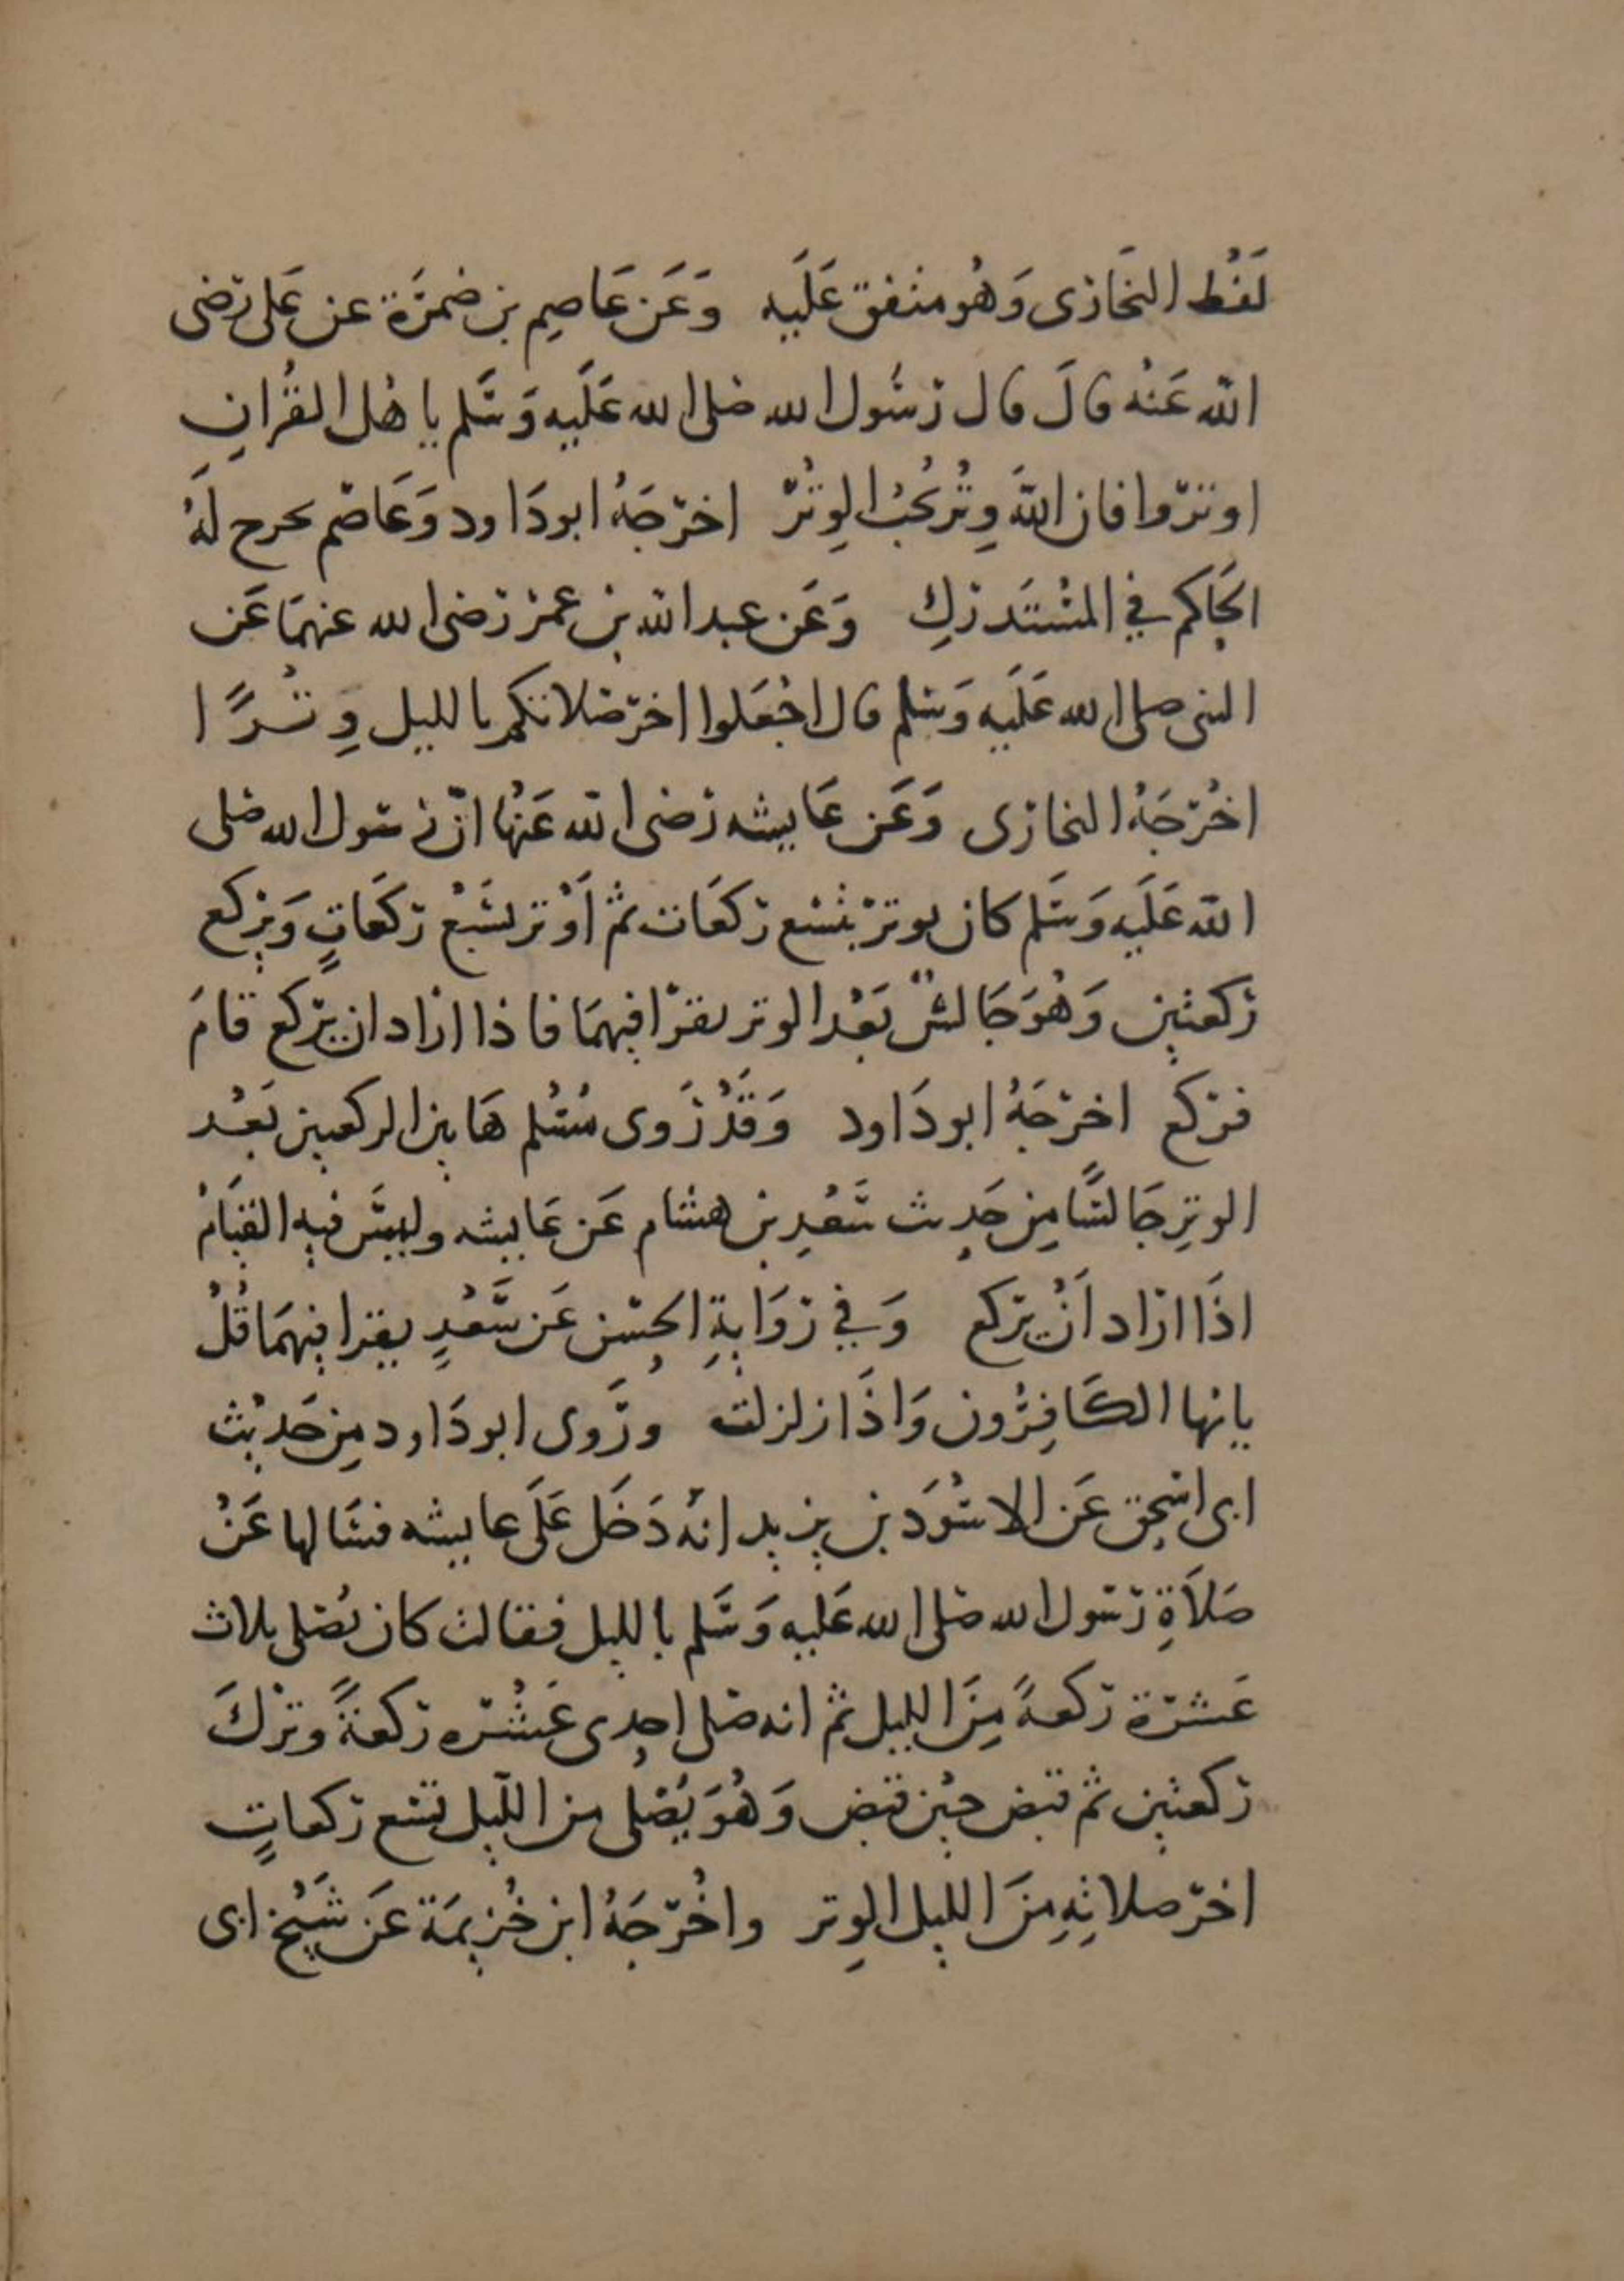 لَفْظ البخَاري وَهُو متفق عَلَيه وَعَن عَاصِم بن ضمرَة عن عَلى رضى
الله عَنْه قالَ قال رسُول الله صلى الله عَلَيه وَسَلم يا هل القُرانِ
اوتروا فان اللهَ وِتْر يُحبُ الوِتْر اخرَجَهُ ابو دَاود وَعَاصم تخرج لَهُ
الحَاكم في المسْتَدركِ وَعَن عبد الله بن عمر رضى الله عنهمَا عَن
النبى صلى الله عَلَيه وَسَلم قال اجْعَلوا اخر صَلاتكم بالليل وِتْرًا
اخْرَجَهُ البخارى وَعَن عَايشه رضى الله عَنْها انّ رسول الله صلى
الله عَلَيه وَسَلم كان يوتر بتسْع ركعَات ثم أَوْتر بسَبْع ركعَاتٍ وَيركع
ركعتين وَهُوَ جَالسٌ بَعْد الوتر يقرَا فيهمَا فاذا اراد ان يركع قامَ
فركع اخرَجَهُ ابو دَاود وَقَدْ رَوى مُسْلم هَاتين الركعتين بَعْد
الوترِ جَالسًا مِن حَدِيث سَعْدِ بن هشام عَن عَايشه وليسَ فيه القيَامُ
اذَا اراد أَنْ يركع وَفي روَايةِ الحسَن عَن سَعْدٍ يقرا فيهمَا قُلْ
يايها الكَافِرُون وَاذَا زلزلت ورَوى ابو دَاود مِن حَديْث
ابى اسحق عَن الاسْوَد بن يزيد انهُ دَخَل عَلَى عايشه فسَالها عَنْ
صَلاَةِ رسول الله صلى الله عَليه وَسَلم بالليل فقالت كان يُصَلى ثلاث
عَشرَة ركعةً مِنَ الليل ثم انه صَلى احدى عَشْره ركعَةً وترَكَ
ركعتين ثم قبض حيْن قبض وَهُوَ يُصَلى من اللّيل تسْع ركعاتٍ
اخر صلاتِهِ مِنَ الليل الوِتر واخْرَجَهُ ابن خُزيمَة عَن شَيْخ ابى